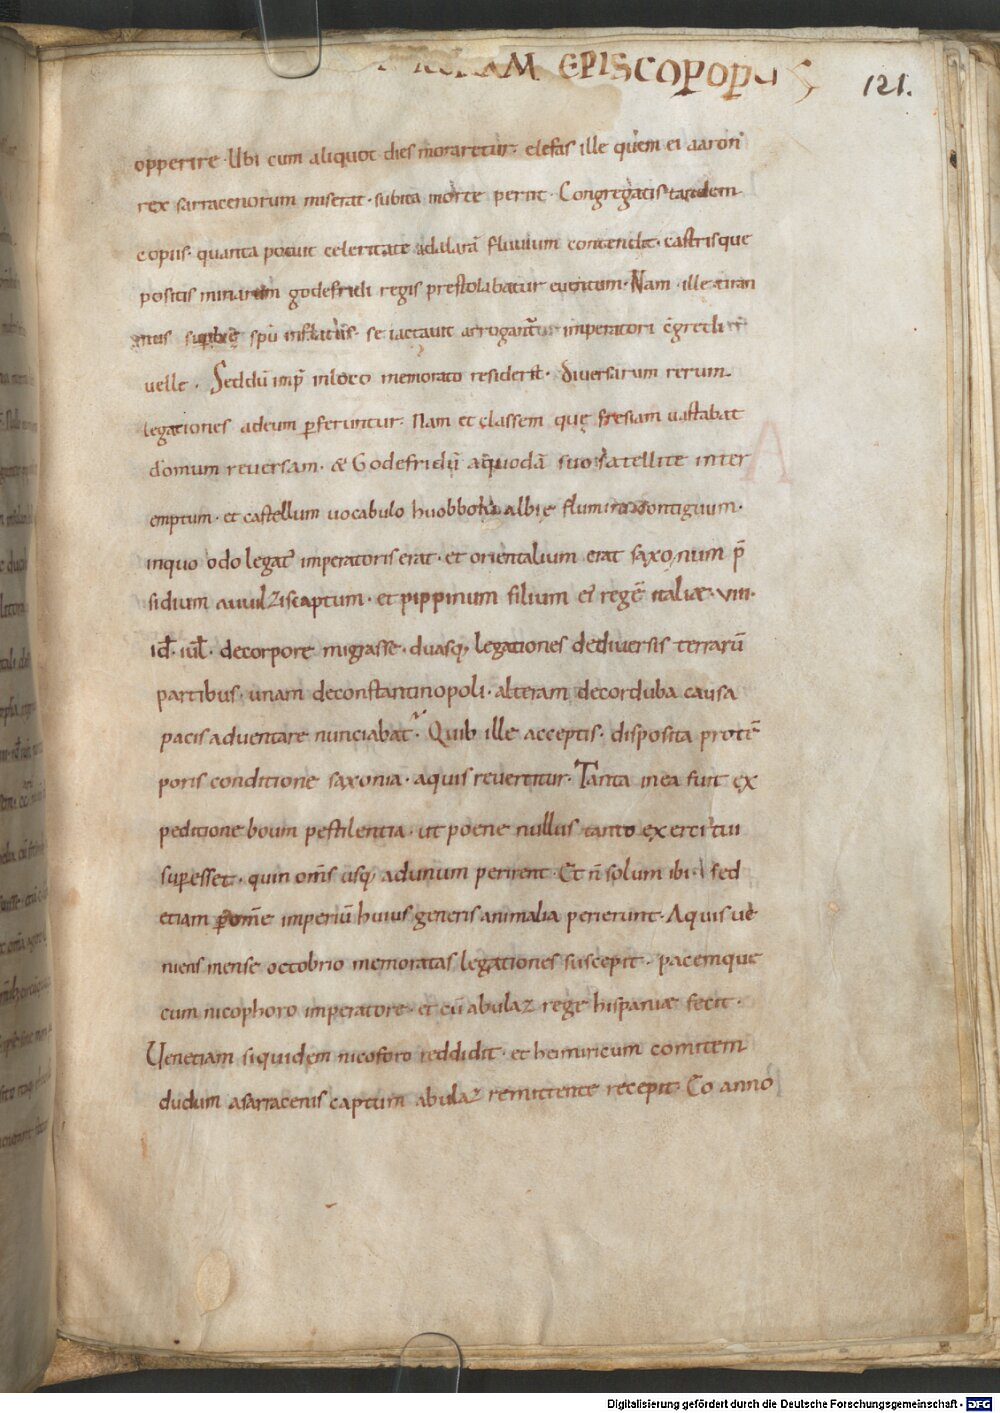 EPISCOPOPUS
121.
opperire. Ubi cum aliquot dies moraretur. elefas ille quem ei aaron
rex sarracenorum miserat. subita morte periit. Congregatis tandem
copiis. quanta potuit celeritate adalarā fluuium contendit. castrisque
positis minarum godefridi regis prestolabatur euentum. Nam ille tiran
nus superbię spū inflatus. se iactauit imperatori cgredi
uelle. Sed dū imp̄ in loco memorato resideret. diuersarum rerum
legationes ad eum ꝑferuntur. Nam et classem quę fresiam uastabat
domum reuersam. & Godefridū a quodā suo satellite inter
emptum. et castellum uocabulo huobboki albię flumini contiguum.
in quo odo legat' imperatoris erat. et orientalium erat saxonum p̄
sidium a uuilzis captum. et pippinum filium ei' regē italiæ. VIII.
id. iul. de corpore migrasse. duasq; legationes de diuersis terrarū
partibus. unam de constantinopoli. alteram de corduba causa
pacis aduentare nunciabat. Quib ille acceptis. disposita pro tē
poris conditione saxonia. aquis reuertitur. Tanta in ea fuit ex
peditione boum pestilentia. ut poene nullus tanto exercitui
supesset. quin om̄s usq; ad unum perirent. Et n̄ solum ibi. sed
etiam ꝑ om̄e imperiū huius generis animalia perierunt. Aquis ue
niens mense octobrio memoratas legationes suscepit. pacemque
cum nicophoro imperatore. et cū abulaz rege hispaniæ fecit.
Uenetiam siquidem nicoforo reddidit. et heimricum comitem
dudum a sarracenis captum abulaz remittente recepit. Eo anno
Digitalisierung gefördert durch die Deutsche Forschungsgemeinschaft - DFG